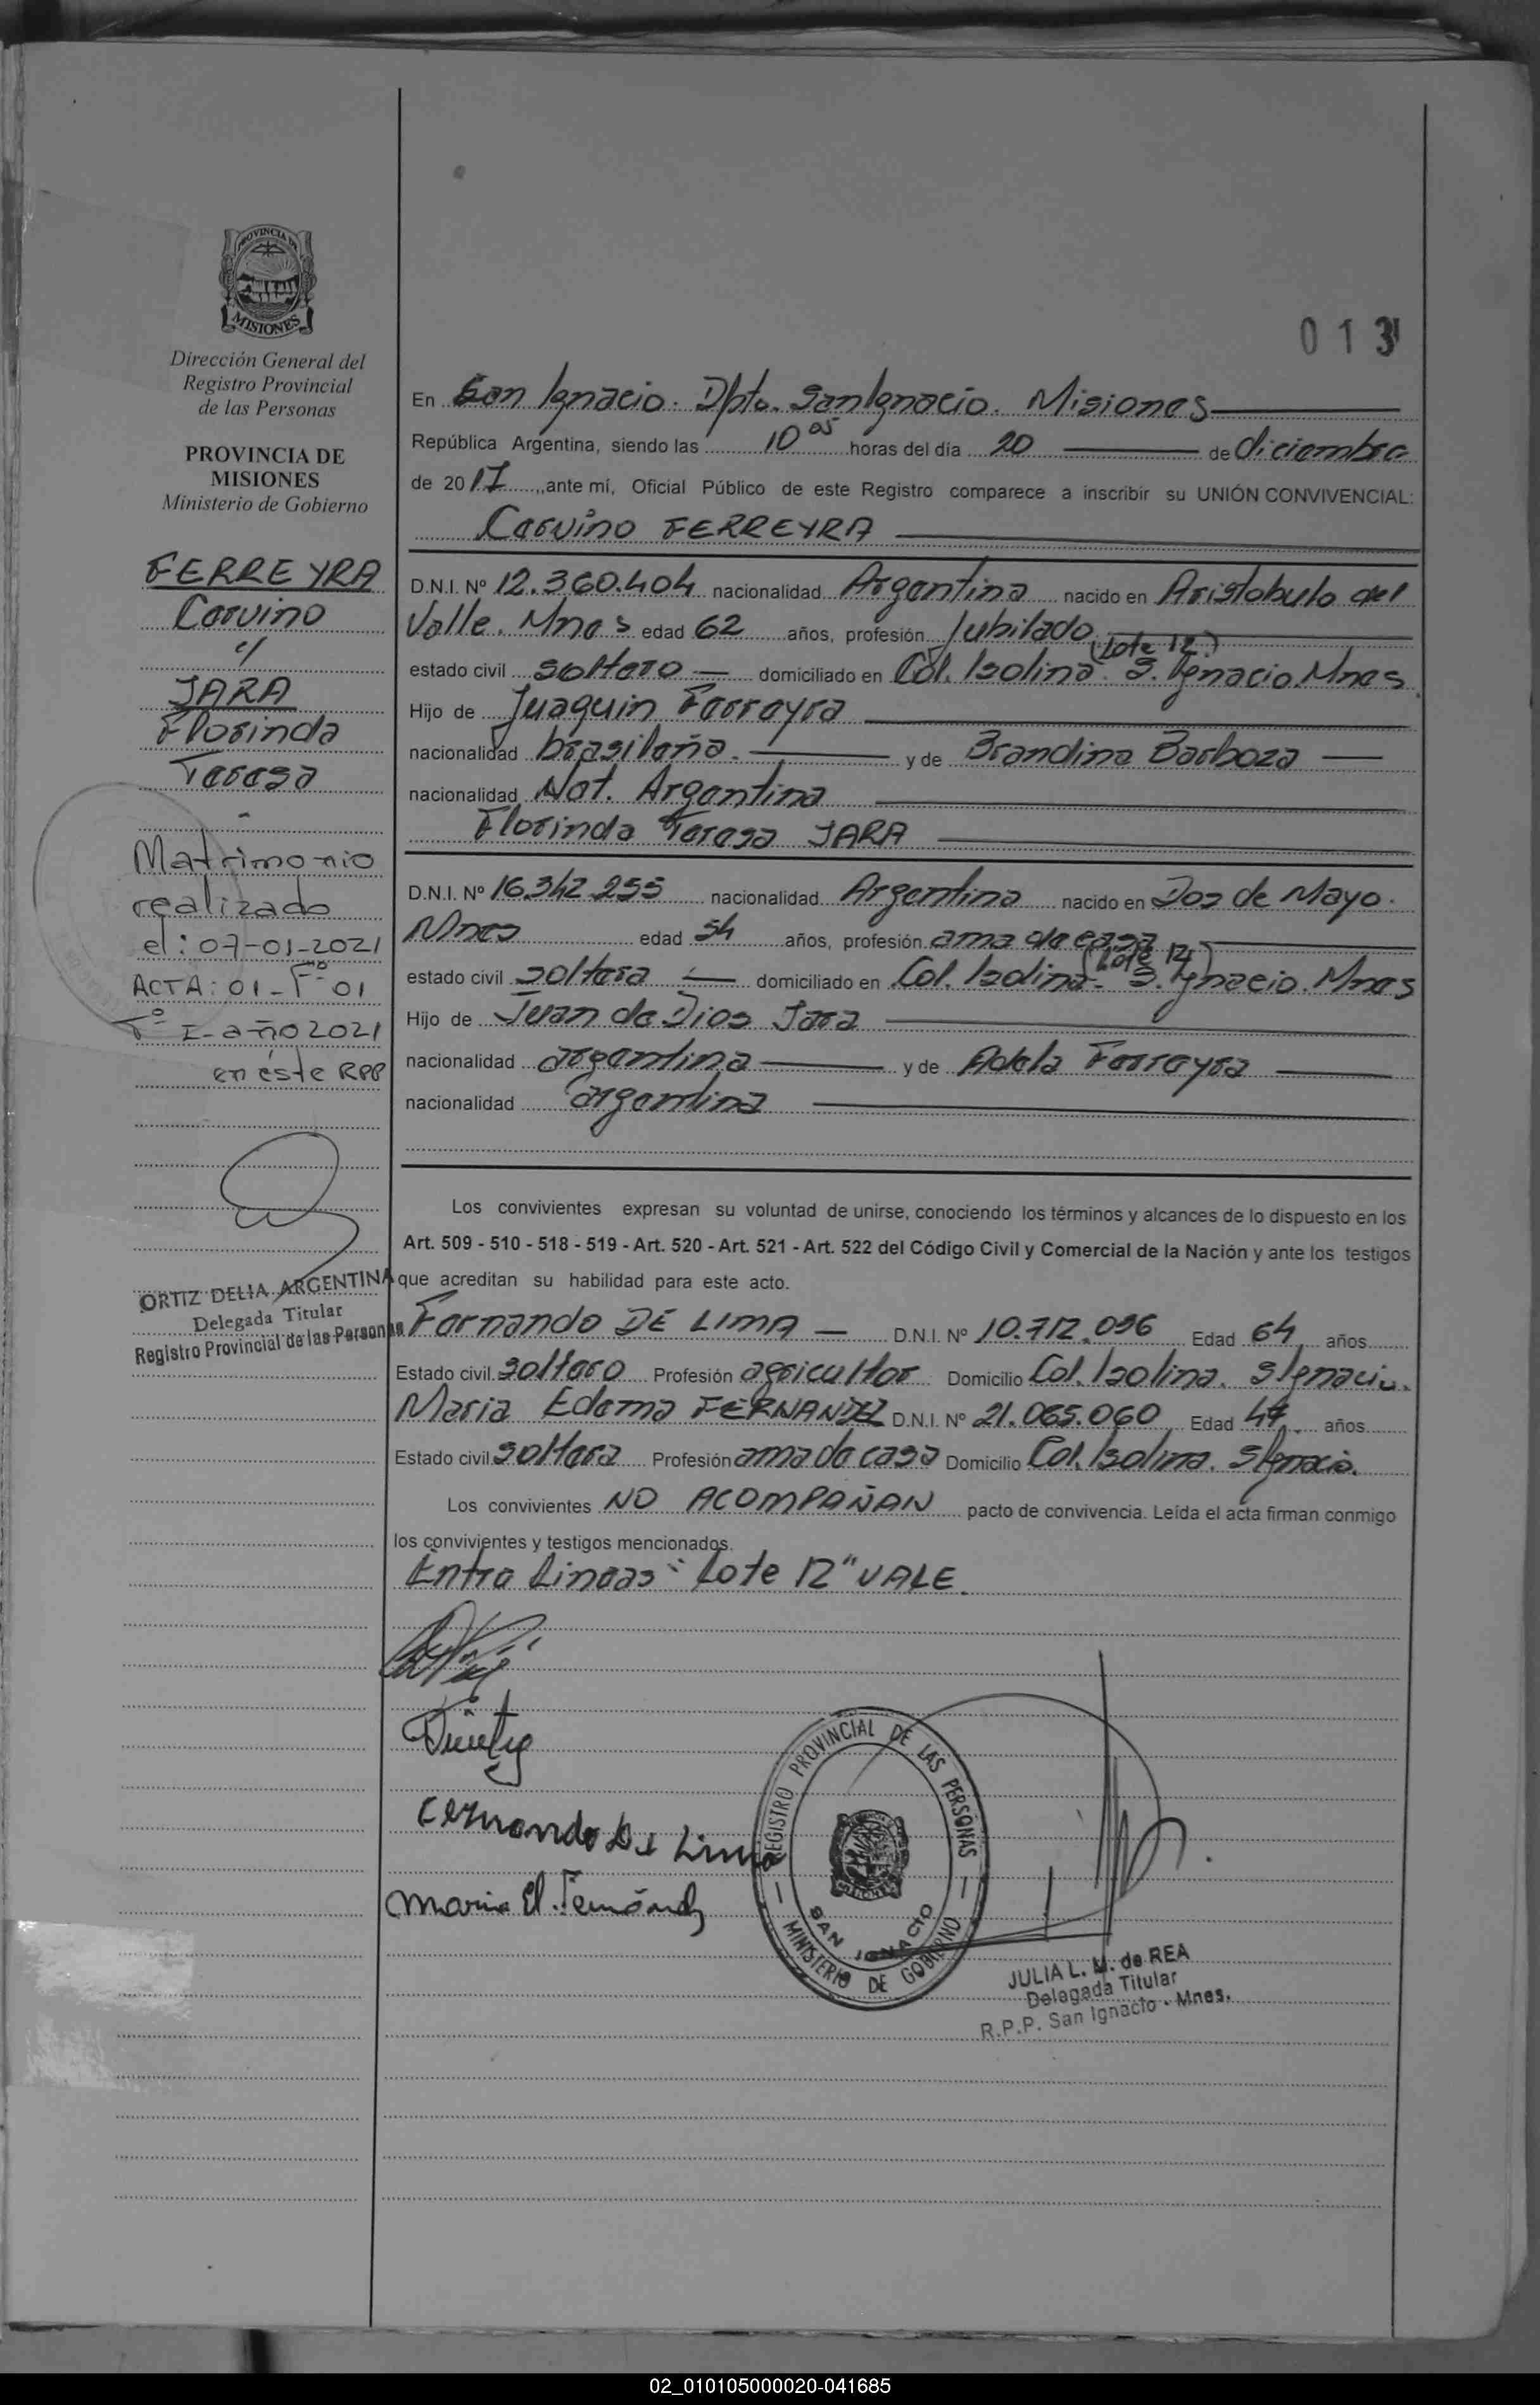 013
PROVINCIA DE
MISIONES
Dirección General del
Registro Provincial
de las Personas
PROVINCIA DE
MISIONES
Ministerio de Gobierno
FERREYRA
Carvino
c/
JARA
Florinda
Teresa
Matrimonio
realizado
el: 07-01-2021
ACTA: 01 - Fº 01
Tº I - año 2021
en éste RPP
ORTIZ DELIA ARGENTINA
Delegada Titular
Registro Provincial de las Personas
En San Ignacio. Dpto. San Ignacio. Misiones
República Argentina, siendo las 10 05 horas del día 20 de diciembre
de 2017, ante mí, Oficial Público de este Registro comparece a inscribir su UNIÓN CONVIVENCIAL:
Carvino FERREYRA
D.N.I. Nº 12.360.404 nacionalidad Argentina nacido en Aristobulo del
Valle. Mnes edad 62 años, profesión Jubilado
(Lote 12)
estado civil soltero domiciliado en Col. Isolina. S. Ignacio. Mnes
Hijo de Juaquin Ferreyra
nacionalidad brasileña. y de Brandina Barboza
nacionalidad Nat. Argentina
Florinda Teresa JARA
D.N.I. Nº 16.342.255 nacionalidad Argentina nacido en Dos de Mayo.
Mnes edad 54 años, profesión ama de casa
(Lote 12)
estado civil soltera domiciliado en Col. Isolina. S. Ignacio. Mnes
Hijo de Juan de Dios Jara
nacionalidad argentina y de Adela Ferreyra
nacionalidad argentina
Los convivientes expresan su voluntad de unirse, conociendo los términos y alcances de lo dispuesto en los
Art. 509 - 510 - 518 - 519 - Art. 520 - Art. 521 - Art. 522 del Código Civil y Comercial de la Nación y ante los testigos
que acreditan su habilidad para este acto.
Fernando DE LIMA D.N.I. Nº 10.712.096 Edad 64 años
Estado civil soltero Profesión agricultor Domicilio Col. Isolina. S Ignacio.
Maria Edema FERNANDEZ D.N.I. Nº 21.065.060 Edad 47 años
Estado civil soltera Profesión ama de casa Domicilio Col. Isolina. S Ignacio.
Los convivientes NO ACOMPAÑAN pacto de convivencia. Leída el acta firman conmigo
los convivientes y testigos mencionados.
Entre Lineas "Lote 12" VALE.
Fernando De Lima
Maria E. Fernández
REGISTRO PROVINCIAL DE LAS PERSONAS
SAN IGNACIO
MINISTERIO DE GOBIERNO
JULIA L. M. de REA
Delegada Titular
R.P.P. San Ignacio - Mnes.
02_010105000020-041685